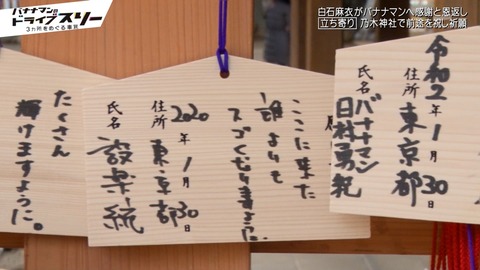 バナナマンの
ドライブスリー
3ヵ所をめぐる車旅
白石麻衣がバナナマンへ感謝と恩返し
[立ち寄り] 乃木神社で前途を祝し祈願
令和2年1月30日
住所 東京都
氏名 バナナマン
日村勇紀
ここに来た
誰よりも
スゴくなりますように。
2020年1月30日
住所 東京都
氏名 設楽統
たくさん
輝けますように。